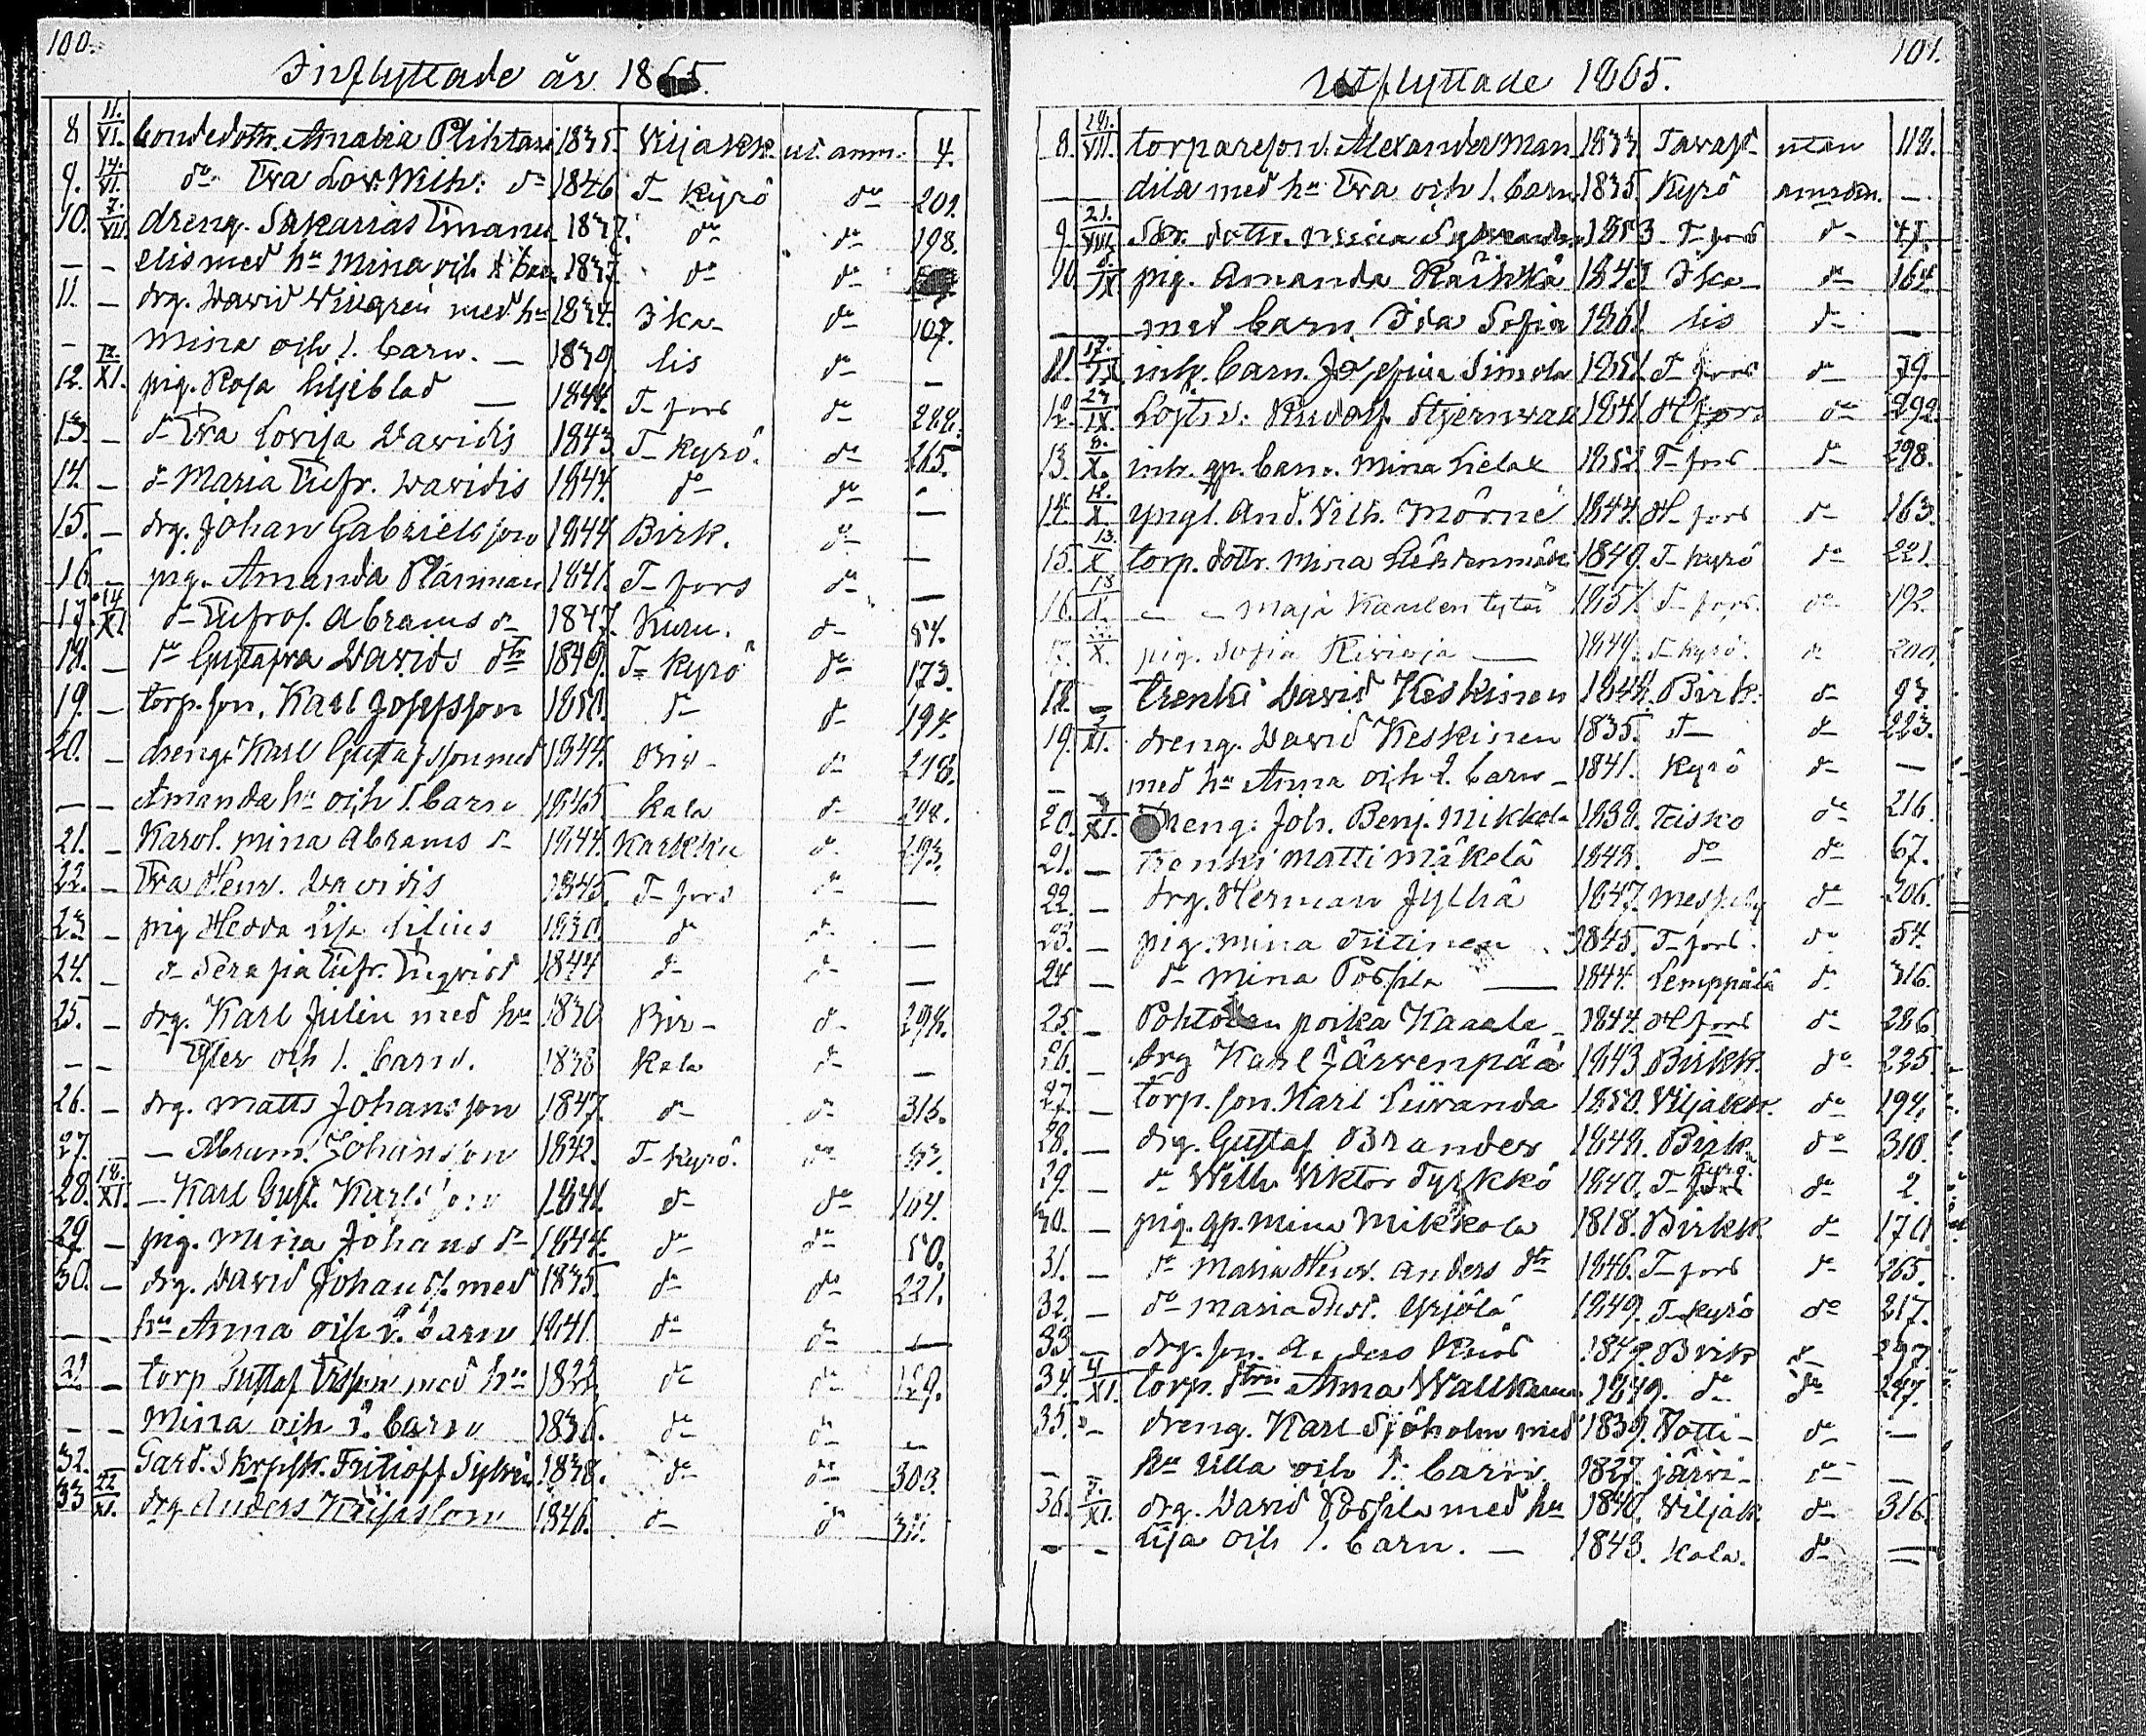 100.
Inflyttade år 1865.
8 11./VI. bondedottr. Amalia Plihtari 1835. Viljakk. ut. anm. 4.
9. 14./VI. do Eva Lov. Wilh: do 1846 T- Kyrö do 201.
10. 7./VII. dreng. Sakarias Emanu- 1837. do do 198.
- - elis med hu Mina och barn 1837. do do
11. - drg. David Vingren med hu 1834. Ika- do 107.
- Mina och 1. barn. - 1839. lis do -
12. 12./XI. pig. Rosa Liljeblad - 1844. T- fors do 288.
13. - do Eva Lovisa Davidis 1843. T- Kyrö. do 265.
14. - do Maria Eufr. Davidis 1844. do do -
15. - drg. Johan Gabrielsson 1844 Birk. do -
16. - pig. Amanda Planman 1841. T- fors do -
17. 14/XI do Eufros. Abrams do 1847. Kuru. do 54.
18. - do Gustafva Davids dtr 1849. T- Kyrö do 173.
19. - torp. son. Karl Josefsson 1850. do do 194.
20. - dreng. Karl Gustafsson med 1844. Bir- do 218.
- - Amanda hu och 1. barn 1845 kala do 248.
21. - Karol. Mina Abrams do 1844. Karkku do 293.
22. - Eva Henr. Davidis 1845. T- fors do -
23 - pig Hedda Lisa Silius 1830. do do -
24. - do Serafia Eufr. Enqvist 1844 do do -
25. - drg. Karl Julin med hu 1830 Bir- do 298.
- - Ester och 1. barn. 1838 kala do -
26. - drg. Matts Johansson 1847. do do 316.
27. - - Abram. Johansson 1842. T- Kyrö. do
28. 18./XI. - Karl Gust. Karlsson 1841. do do 164.
29. - pig. Mina Johans do 1844. do do 50.
30. - drg. David Johanss. med 1835. do do 221.
- - hu Anna och 2. barn 1841. do do -
31 - torp Gustaf med hu 1822. do do 129.
- - Mina och 2. barn 1836. do do -
32. Gard. Skrpstr. Fritioff Sylvén 1838. do do 303.
33 22/XI. drg. Anders 1846. do do 311.
101.
Utflyttade 1865.
8. 24./VII. torpareson. Alexander Man 1833 Tavast- utan 118.
- - dila med hu Eva och 1. barn 1835. Kyrö anmärn. -
9. 21./VIII. dottr. 1853 T- fors do 47.
10. 8./IX. pig. Amanda Räihkä 1843 Ika- do 164.
- - med barn Ida Sofia 1861 lis do -
11. 17./IX. inh. barn. Josefina Simola 1851. T- fors do 79.
12. 23/IX. Löjtn: Rudolf Stjernvall 1841. H-fors do 292.
13. 8./X. inh. gp. barn. Mina Lielax 1852 T- fors do 298.
14. 12./X. yngl. And. Vilh. Mörne 1844. H- fors do 163.
15. 13./X torp. dottr. Mina 1849. T- Kyrö do 221.
16. 13/X. - - Maja 1851. T- fors. do 192.
17. X. pig. Sofia Kivioja - 1849. T- kyrö. do 200.
18. - trenki David Keskinen 1844. Birk. do 93.
19. 2/XI. dreng. David Keskinen 1835. T- do 223.
- - med hu Anna och 2. barn - 1841. Kyrö do -
20. XI. Dreng. Joh. Benj. Mikkola 1838. Teisko do 216.
21. - Trenki Matti Mäkelä 1843. do do 67.
22. - drg. Herman Jylhä 1847. Messuby do 306.
23. - pig. Mina Tiitinen 1845. T- fors. do 54.
24 - do Mina Pospla - 1844. Lemppälä do 316.
25. - Pohtolan poika Kaaale - 1844. H-fors do 286
26. - drg Karl Järvenpää 1843. Birkk. do 225
27. - torp. son. Karl Liiranda 1850. Viljakk. do 194.
28. - drg. Gustaf Brander 1848. Birk. do 310.
29. - do Wilh. Viktor Tyrkkö 1840. T- Kyrö. do 2.
30. - pig. gp. Mina Mikkola 1818. Birkk. do 170.
31. - do Maria Henr. Anders dtr 1846. T- fors do 265.
32. - do Maria Gust. Yrjölä 1849. T- kyrö do 217.
33 - drg. son. Anders 1847. Birk do 297
34. 4/XI. torp. dtrn Anna 1849. do do 247.
35. - dreng. Karl Sjöholm med 1839. Votti- do -
- - hu Ulla och 1. barn. 1827. järvi- do -
36. 7./XI. drg. David Pospla med hu 1840. Viljak- do 316.
- - Lisa och 1. barn. - 1843. kala. do =